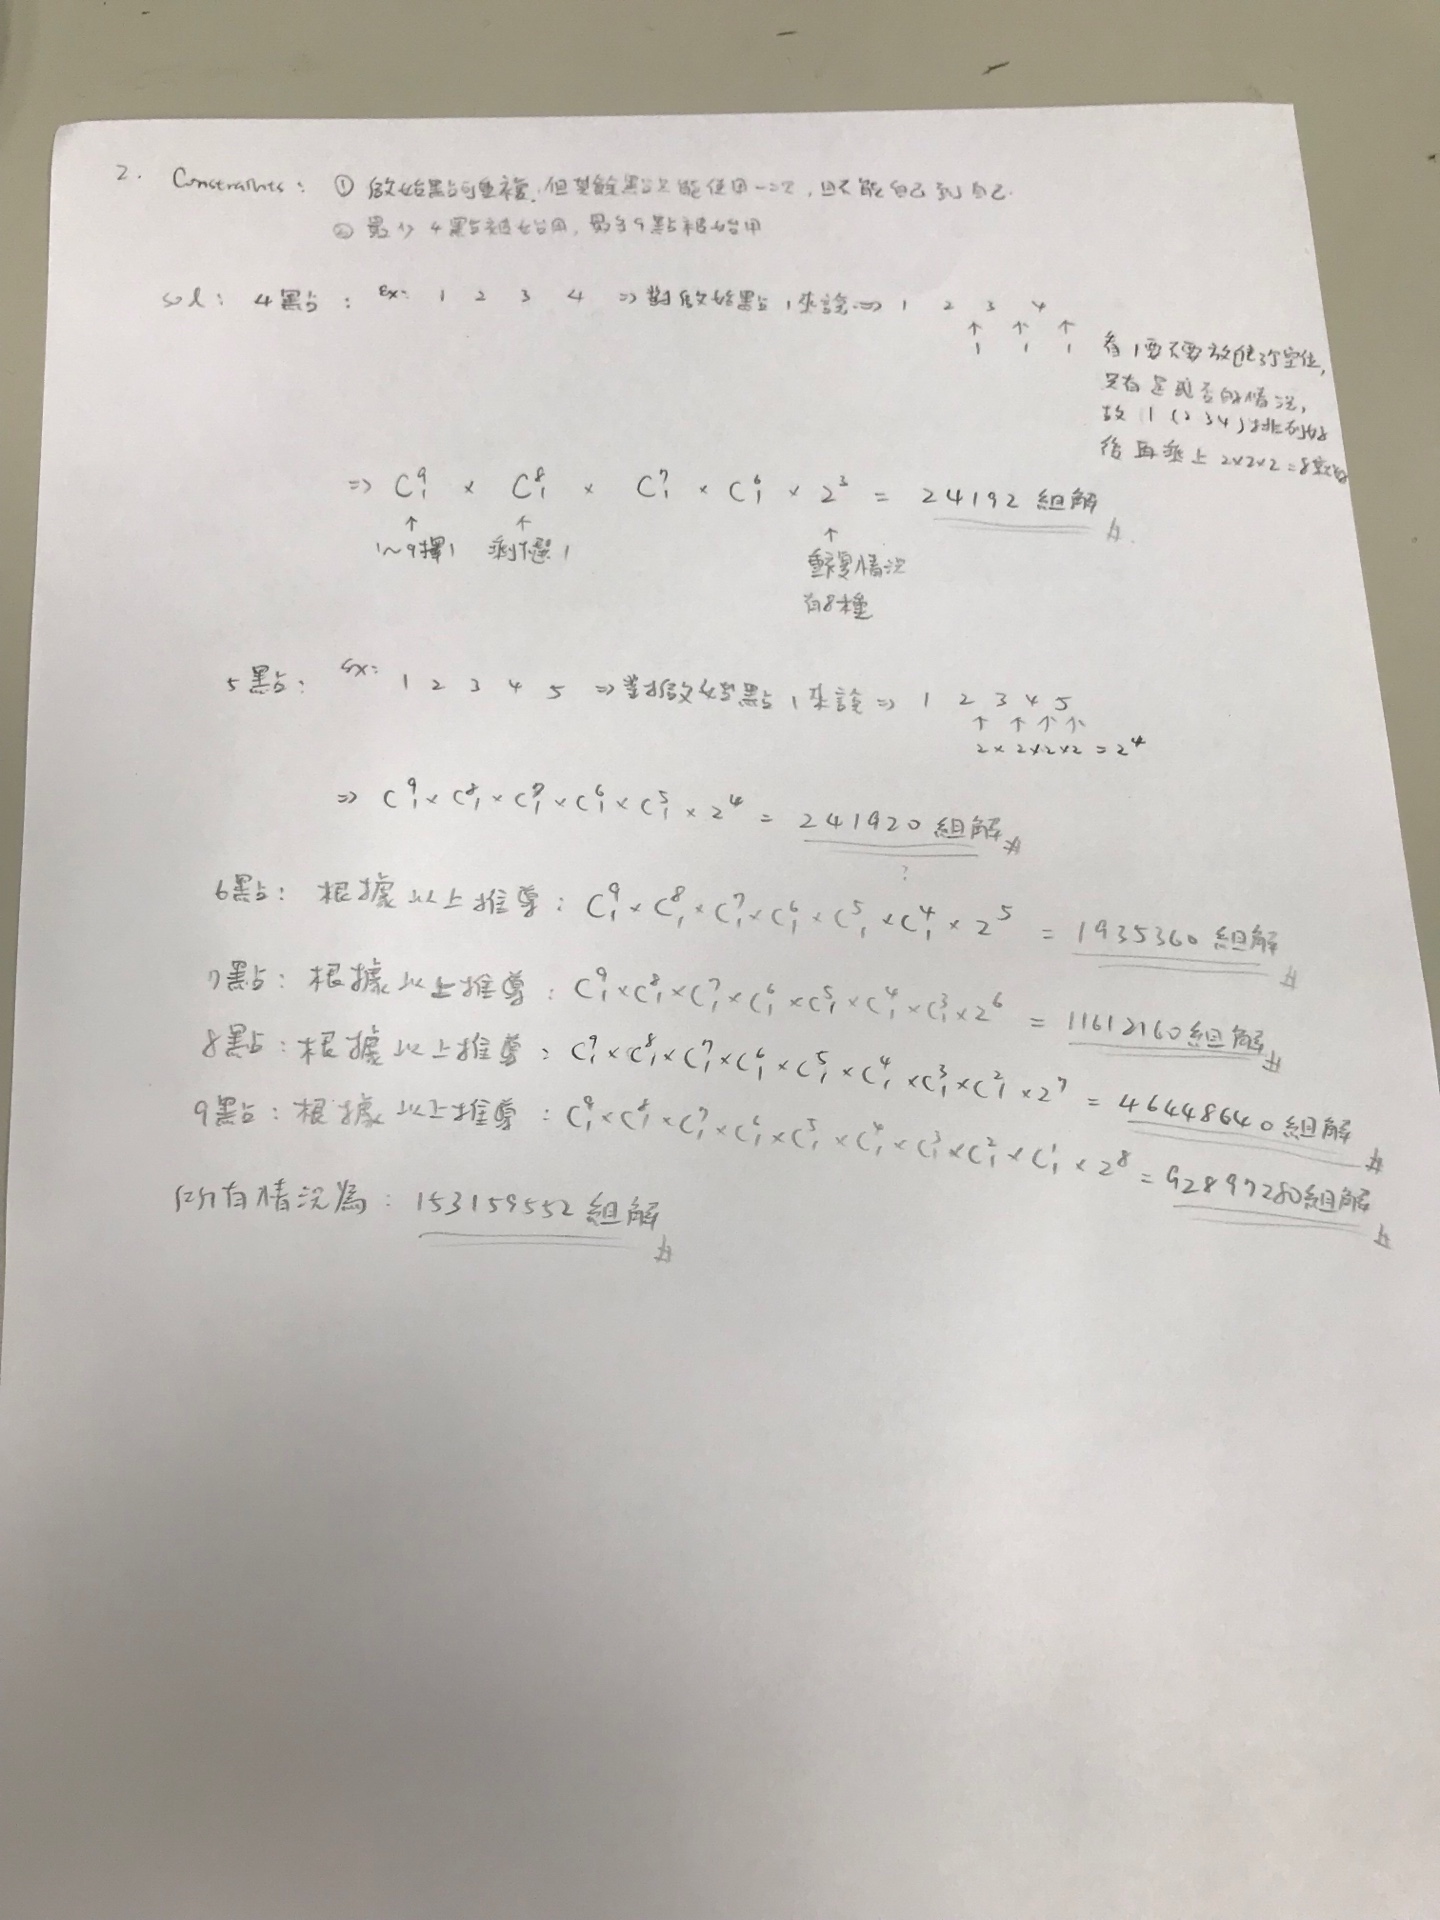 2. Constraints: ① 啟始點可重複, 但其餘點只能使用一次, 且不能自己到自己.
② 最少4點被始用, 最多9點被始用
sol: 4點: ex: 1 2 3 4 => 對啟始點1來說 => 1 2 3 4
↑ ↑ ↑
1 1 1
看1要不要放但3個空位,
只有是或否的情況,
故1(234)排列好
後再乘上2×2×2=8
=> C⁹₁ × C⁸₁ × C⁷₁ × C⁶₁ × 2³ = 24192 組解 #.
↑ ↑ ↑
1~9擇1 剩下選1 重複情況
有8種
5點: ex: 1 2 3 4 5 => 對啟始點1來說 => 1 2 3 4 5
↑ ↑ ↑ ↑
2×2×2×2=2⁴
=> C⁹₁ × C⁸₁ × C⁷₁ × C⁶₁ × C⁵₁ × 2⁴ = 241920 組解 #
?
6點: 根據以上推導: C⁹₁ × C⁸₁ × C⁷₁ × C⁶₁ × C⁵₁ × C⁴₁ × 2⁵ = 1935360 組解 #
7點: 根據以上推導: C⁹₁ × C⁸₁ × C⁷₁ × C⁶₁ × C⁵₁ × C⁴₁ × C³₁ × 2⁶ = 11612160 組解 #
8點: 根據以上推導: C⁹₁ × C⁸₁ × C⁷₁ × C⁶₁ × C⁵₁ × C⁴₁ × C³₁ × C²₁ × 2⁷ = 46448640 組解 #
9點: 根據以上推導: C⁹₁ × C⁸₁ × C⁷₁ × C⁶₁ × C⁵₁ × C⁴₁ × C³₁ × C²₁ × C¹₁ × 2⁸ = 92897280 組解 #
所有情況為: 153159552 組解 #